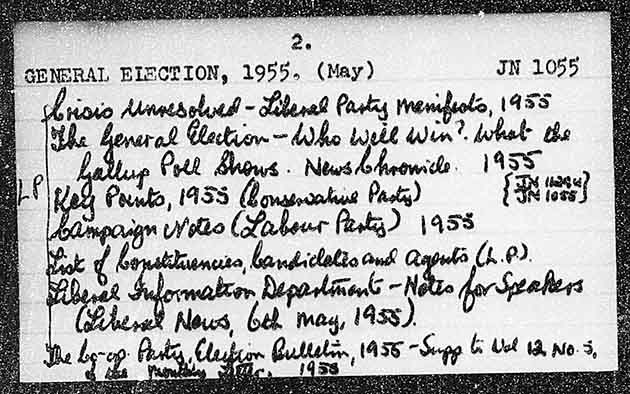 2.
GENERAL ELECTION, 1955. (May) JN 1055
Crisis Unresolved - Liberal Party Manifesto, 1955
The General Election - Who Will Win? What the
Gallup Poll Shows. News Chronicle. 1955
LP Key Points, 1955 (Conservative Party) {JN 1055}
Campaign Notes (Labour Party) 1955
List of Constituencies, Candidates and Agents (L.P.).
Liberal Information Department - Notes for Speakers
(Liberal News, 6th May, 1955).
The Co-op. Party, Election Bulletin, 1955 - Supp to Vol 12 No. 5,
of the Monthly Letter. 1955